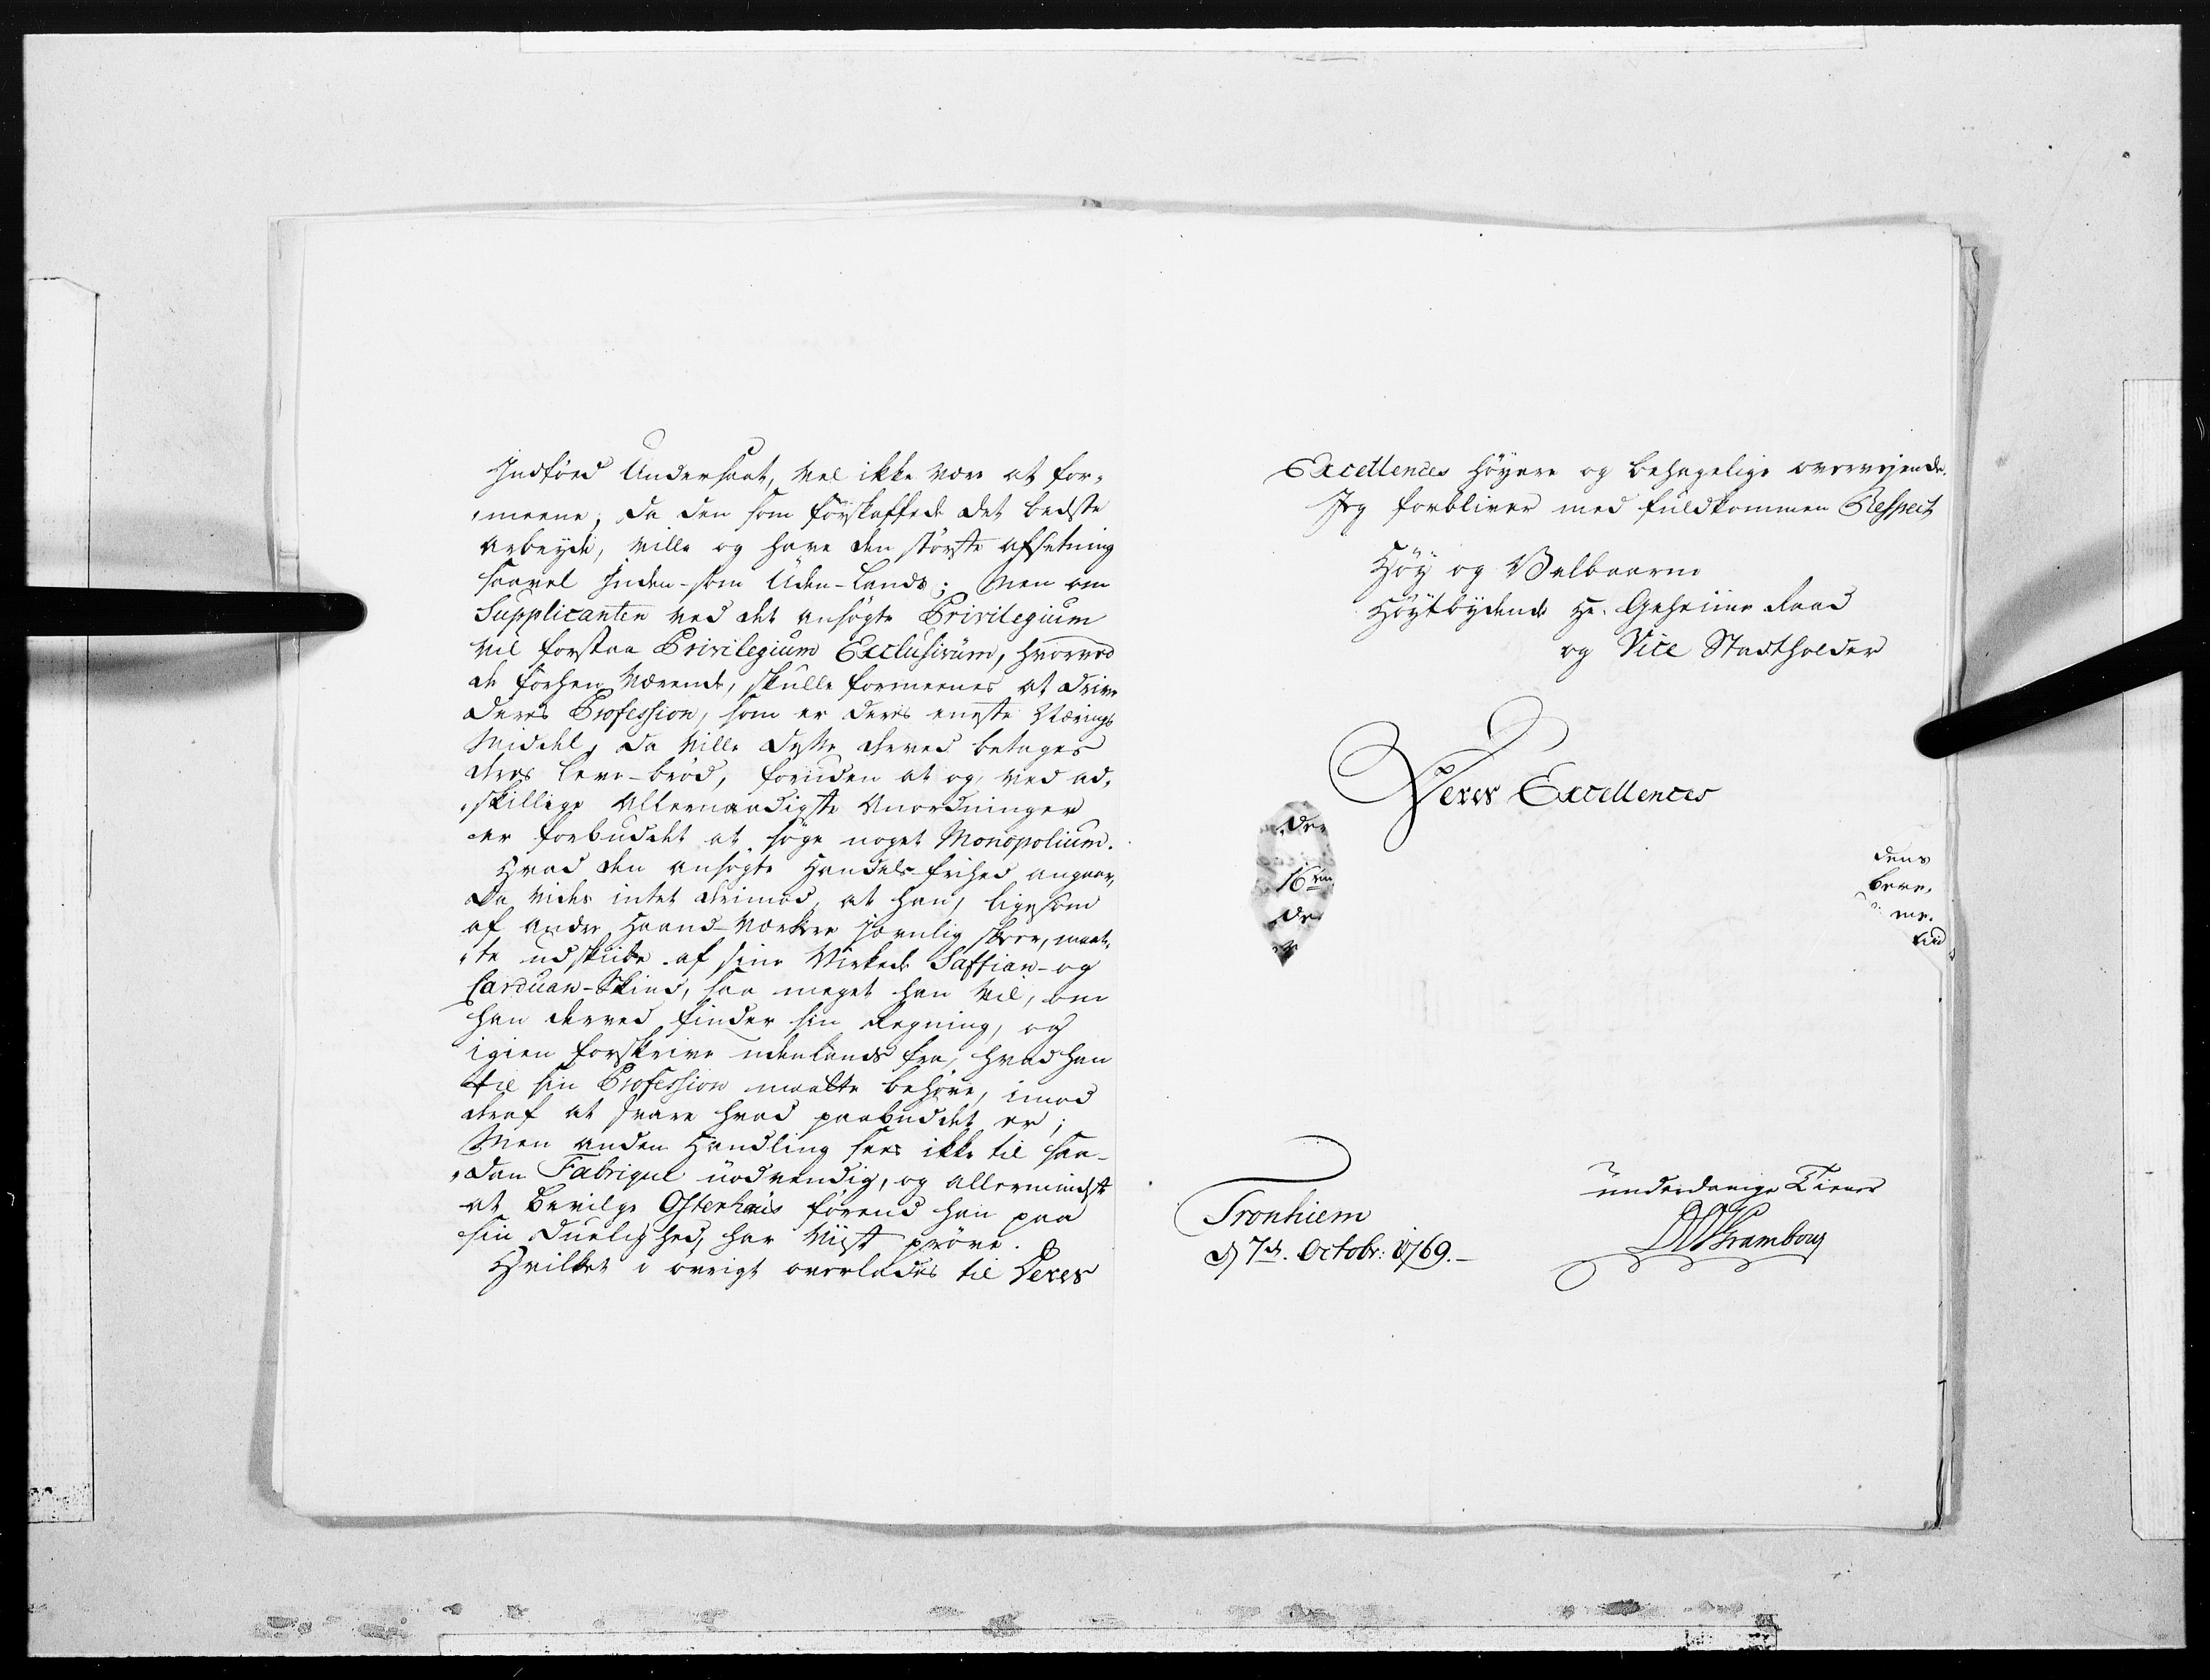 Indföd Undersaat, vel ikke være at for-
meene; da den som forskaffede det bedste
Arbeyde, ville og have den störste afsetning
saavel Inden- som Uden-Lands; Men om
Supplicanten ved det ansögte Privilegium
vil forstaa Privilegium Exclusivum, hvorved
de forhen værende, skulle formeenes at drive
deres Profession, som er deres eneste Nærings
Middel, da ville disse derved betages
deres leve-bröd, foruden at og ved ad-
skillige Allernaadigste Anordninger
er forbuddet at söge noget Monopolium.
Hvad den ansögte Handels-frihed angaar,
da vides intet derimod, at han, ligesom
af andre Haand-Værkere jævnlig skeer, maat-
te udskibe af sine Virkede Saffian- og
Carduan-Skind, saa meget han vil, om
han derved finder sin Regning, og
igien forskrive udenlands fra, hvad han
til sin Profession maatte behöve, imod
deraf at svare hvad paabuddet er;
Men anden Handling sees ikke til saa-
dan Fabrique nödvendig, og allermindst
at bevilge Ostenhuisförend han paa
sin duelighed, har viist pröve.
Hvilket i övrigt overlades til Deres
Excellences höyere og behagelige overvejende.
Jeg forbliver med fuldkommen Respect
Höy og Velbaarne
Höytbydende Hr. Geheime Raad
og Vice Stadtholder
Deres Excellences
der
16
de
dens
beve,
me.
Tronhiem
d 7d. Octobr: 1769.
underdanige Tiener
Krambou